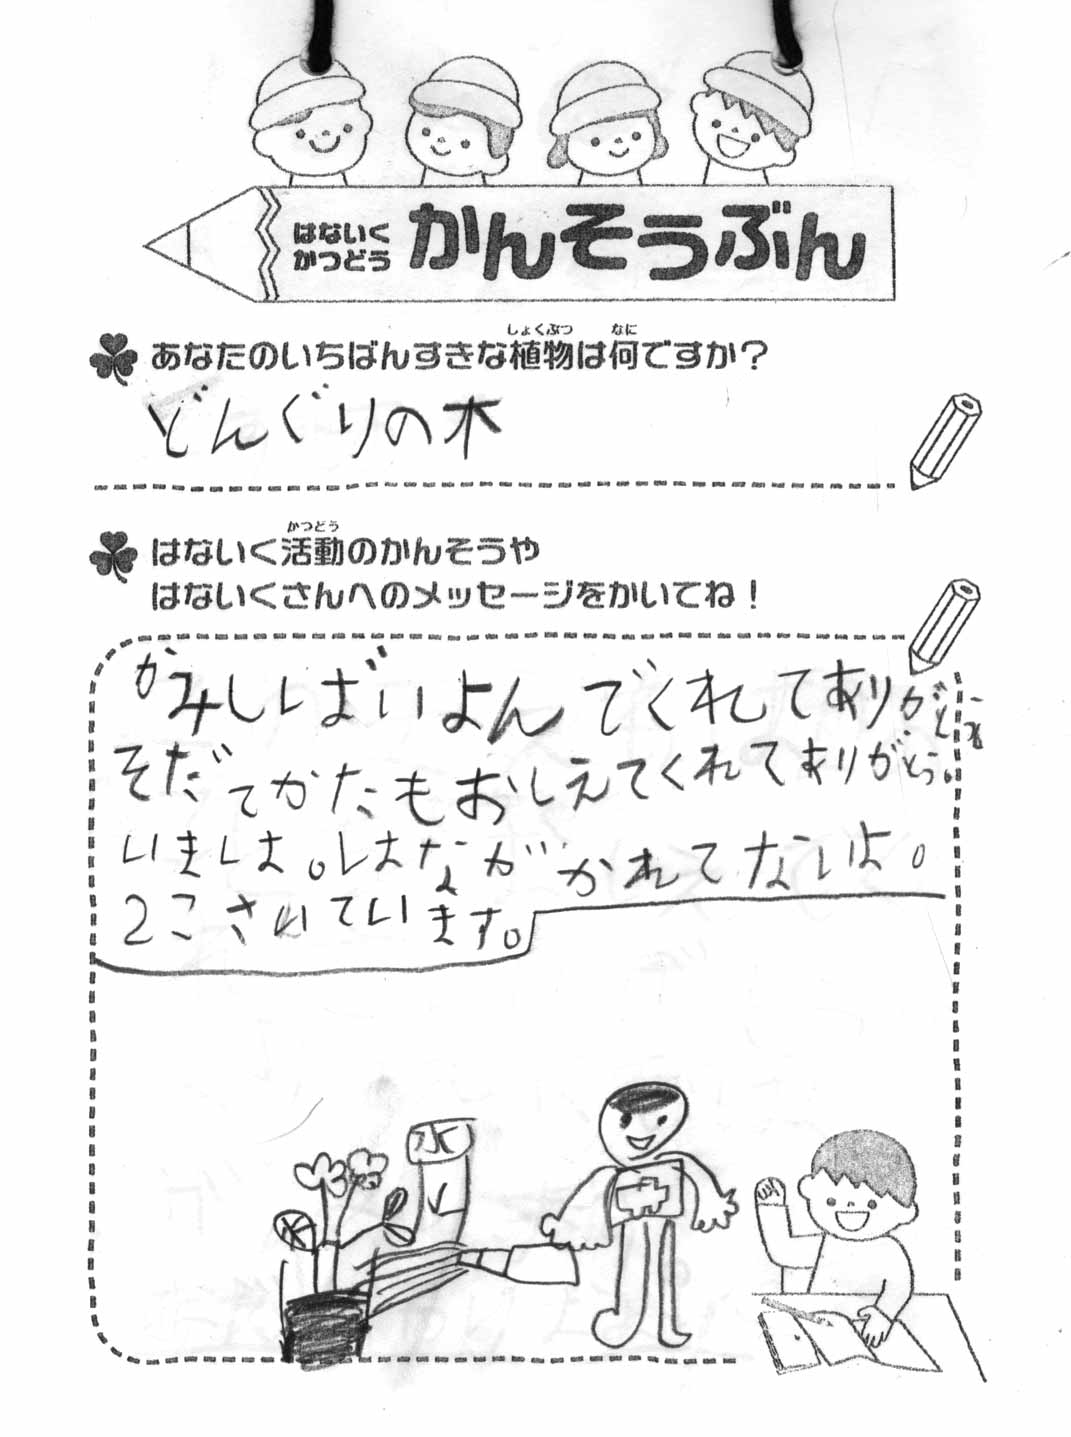 はないく
かつどう
かんそうぶん
しょくぶつ なに
あなたのいちばんすきな植物は何ですか？
どんぐりの木
かつどう
はないく活動のかんそうや
はないくさんへのメッセージをかいてね！
かみしばいよんでくれてありがとう
そだてかたもおしえてくれてありがとう。
いまは。はながかれてないよ。
2こさいています。
水